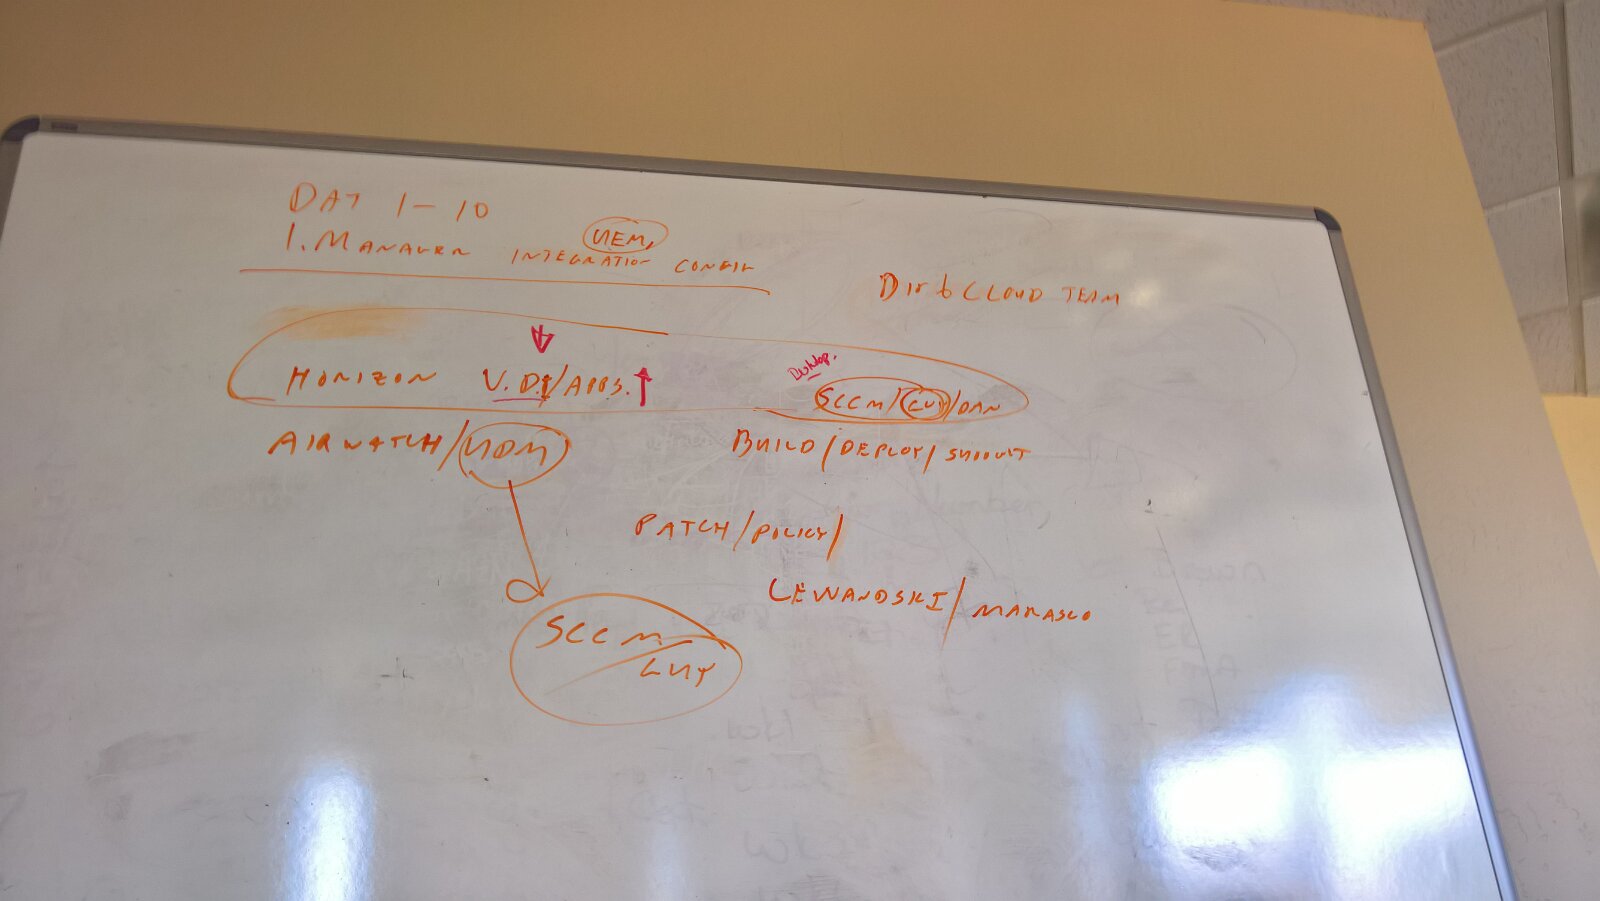 DAY 1-10
UEM,
1. MANAGER INTEGRATION CONFIG
CLOUD TEAM
HORIZON V.D.I/APPS.
Desktop.
SCCM/GUY/DAN
AIRWATCH/UDM
BUILD/DEPLOY/SUPPORT
PATCH/POLICY/
LEWANDSKI/MARASCO
SCCM
GUY